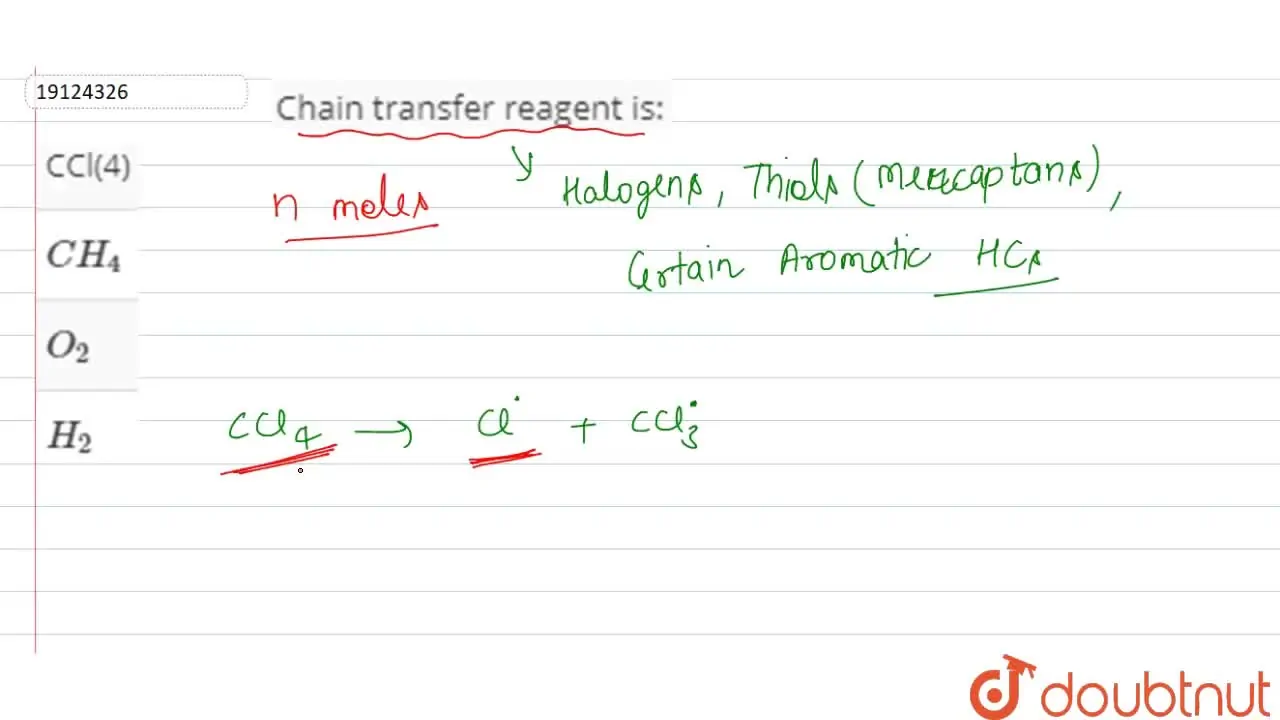 19124326
Chain transfer reagent is:
CCl(4)
CH₄
O₂
H₂
n moles
Halogens, Thiols (Mercaptans),
Certain Aromatic HCs
CCl₄ → Cl• + CCl₃•
doubtnut